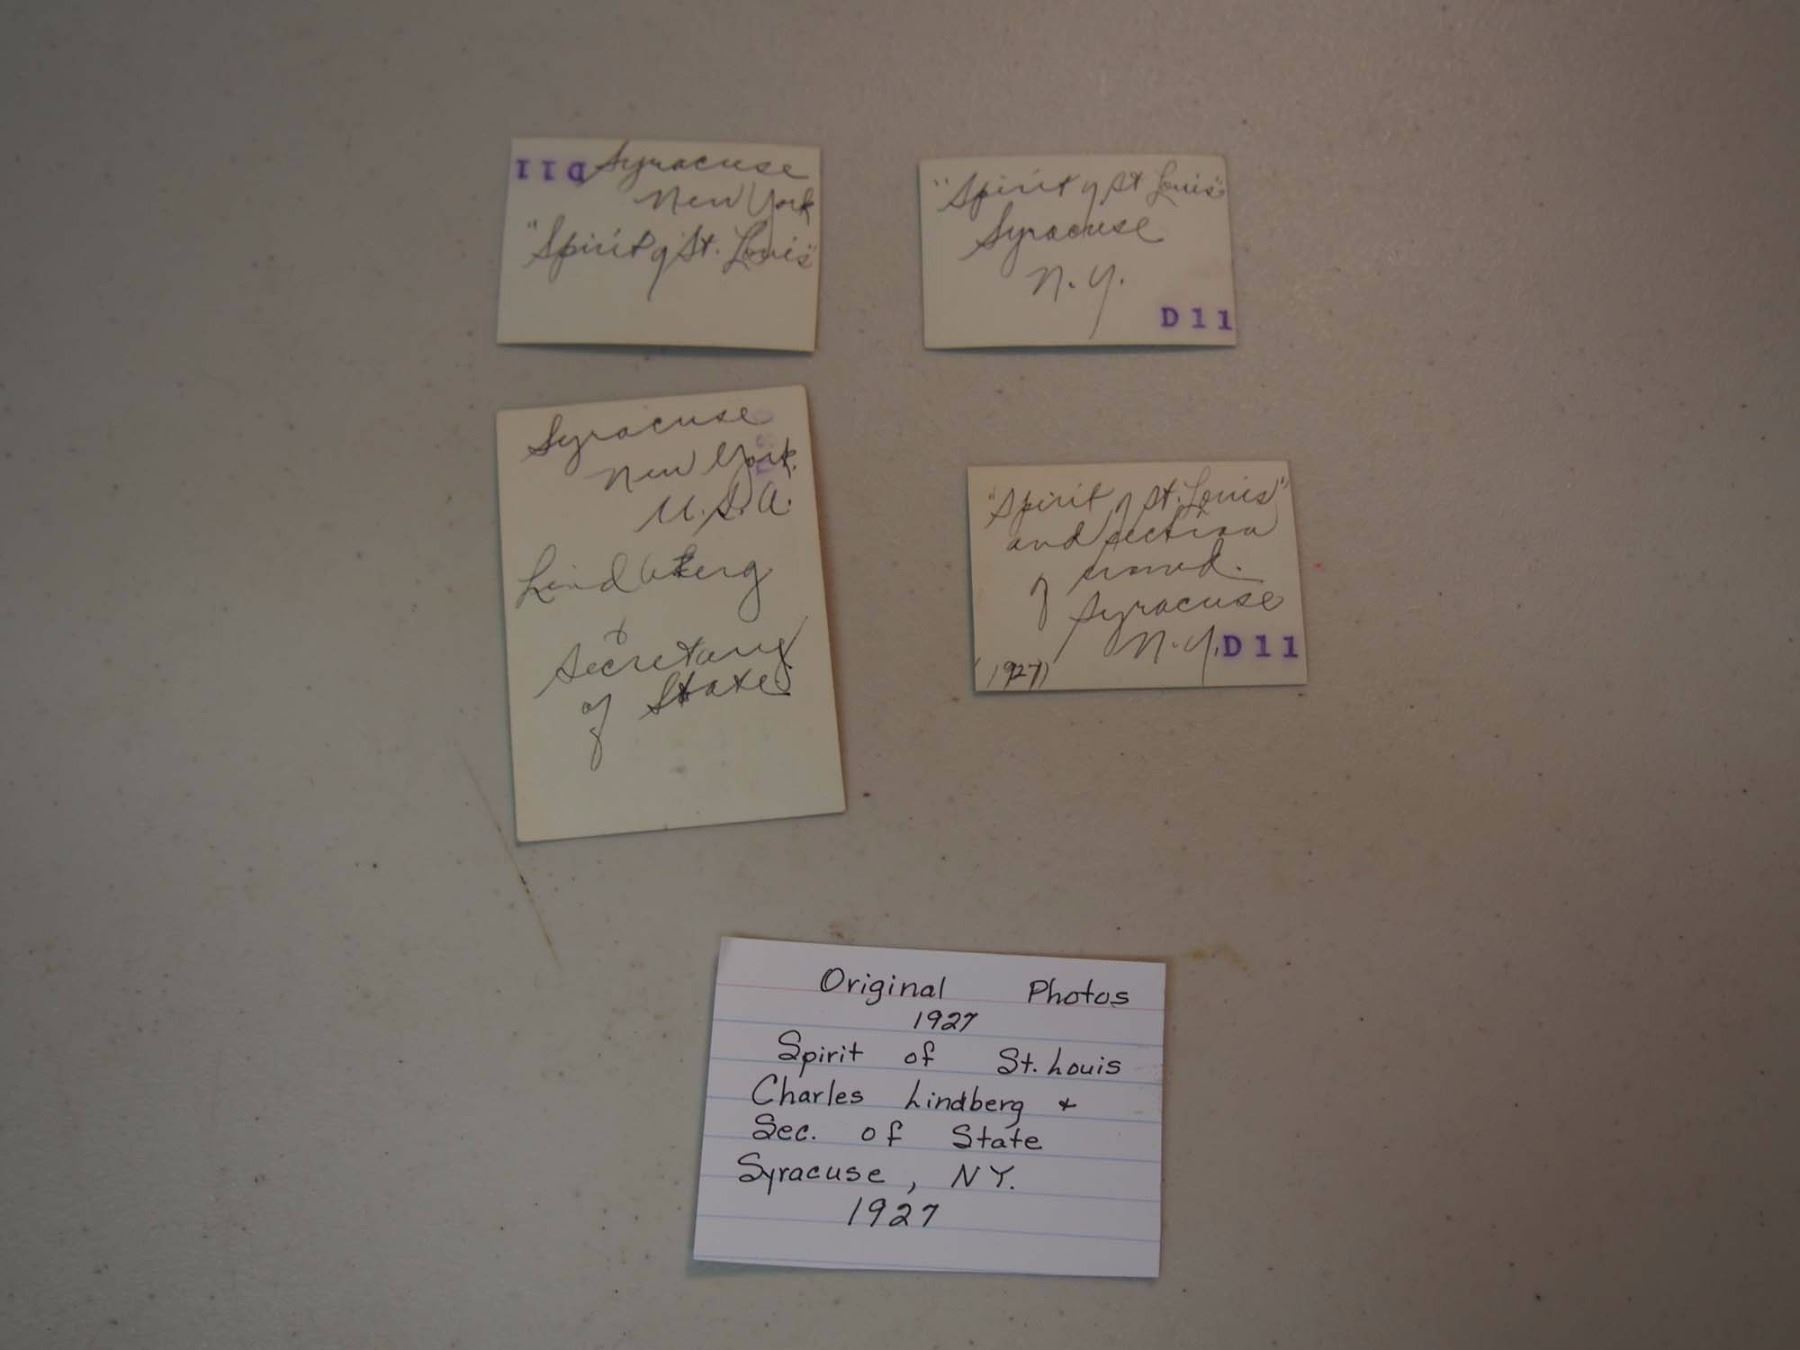 D11 Syracuse
New York
"Spirit of St. Louis"
"Spirit of St Louis"
Syracuse
N.Y.
D11
Syracuse
New York
U.S.A.
Lindberg
&
Secretary
of State
"Spirit of St. Louis"
and section
of crowd.
Syracuse
N.Y. D11
(1927)
Original Photos
1927
Spirit of St. Louis
Charles Lindberg &
Sec. of State
Syracuse, NY.
1927